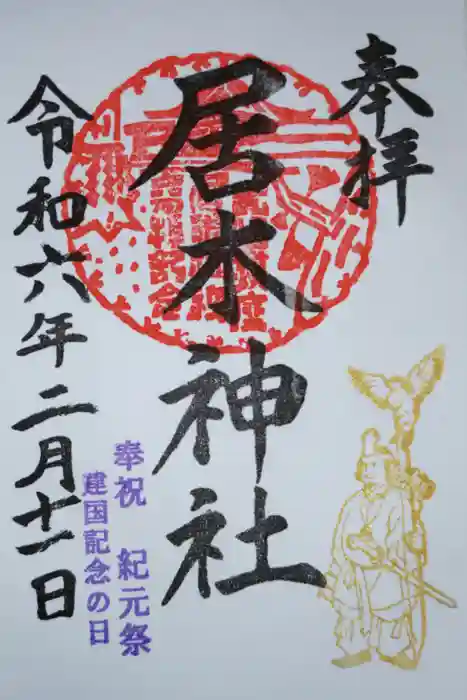 奉拝
居木神社
令和六年二月十一日
奉祝 紀元祭
建国記念の日